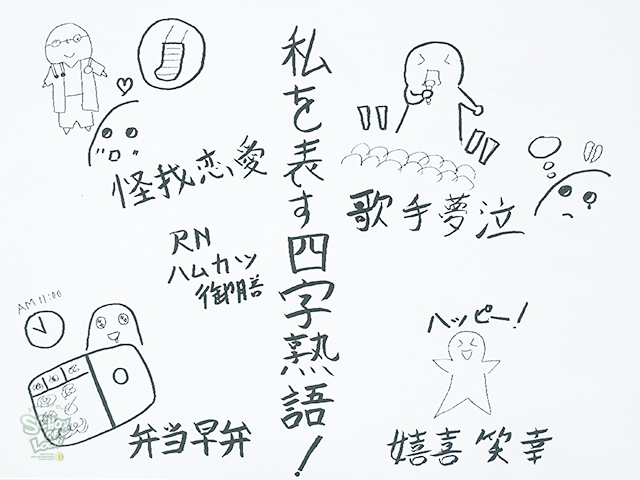 私を表す四字熟語!
怪我恋愛
歌手夢泣
RN
ハムカツ
御膳
AM 11:00
弁当早弁
ハッピー!
嬉喜笑幸